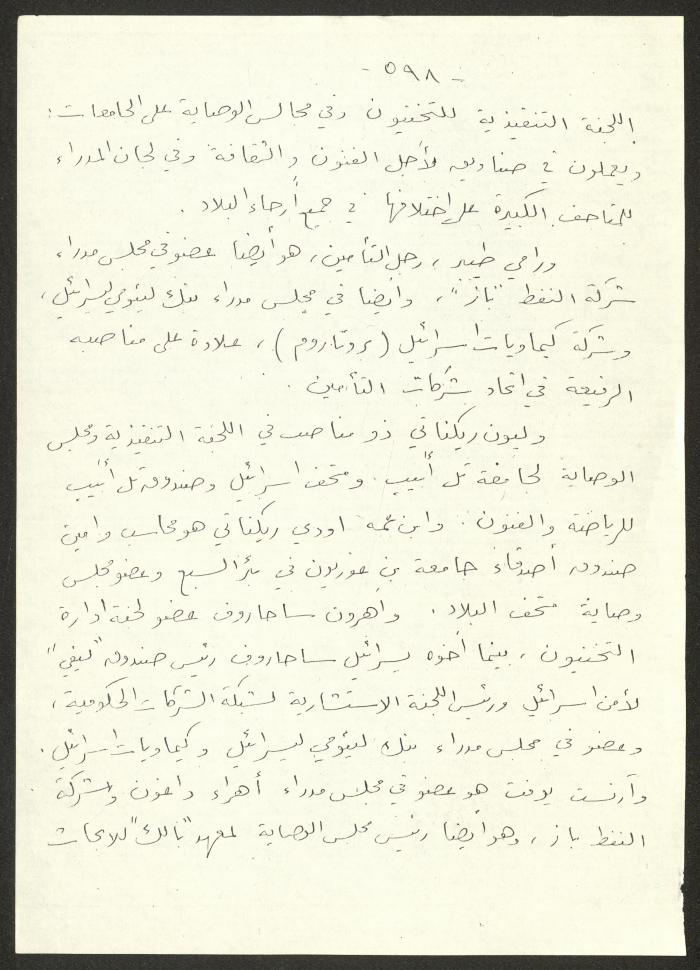 - ٥٩٨ -
اللجنة التنفيذية للتخنيون وفي مجالس الوصاية على الجامعات :
ويعملون في صناديق لأجل الفنون والثقافة وفي لجان المدراء
للمتاحف الكبيرة على اختلافها في جميع أرجاء البلاد .
ورامي طيبر ، رجل التأمين ، هو أيضا عضو في مجلس مدراء
شركة النفط "باز" ، وايضا في مجلس مدراء بنك ليئومي ليسرائيل ،
وشركة كيماويات اسرائيل ( بروتاروم ) ، علاوة على مناصبه
الرفيعة في اتحاد شركات التأمين .
وليون ريكناتي ذو مناصب في اللجنة التنفيذية ومجلس
الوصاية لجامعة تل أبيب . ومتحف اسرائيل وصندوق تل أبيب
للرياضة والفنون . وابن عمه اودي ريكناتي هو محاسب وامين
صندوق أصدقاء جامعة بن غوريون في بئر السبع وعضو مجلس
وصاية متحف البلاد . واهرون ساحاروف عضو لجنة ادارة
التخنيون ، بينما أخوه يسرائيل ساحاروف رئيس صندوق "ليفي"
لأمن اسرائيل ورئيس اللجنة الاستشارية لشبكة الشركات الحكومية ،
وعضو في مجلس مدراء بنك ليئومي ليسرائيل وكيماويات اسرائيل .
وارنست يوفت هو عضو في مجلس مدراء أهراء داغون وشركة
النفط باز ، وهو أيضا رئيس مجلس الوصاية لمعهد "بالك" للابحاث